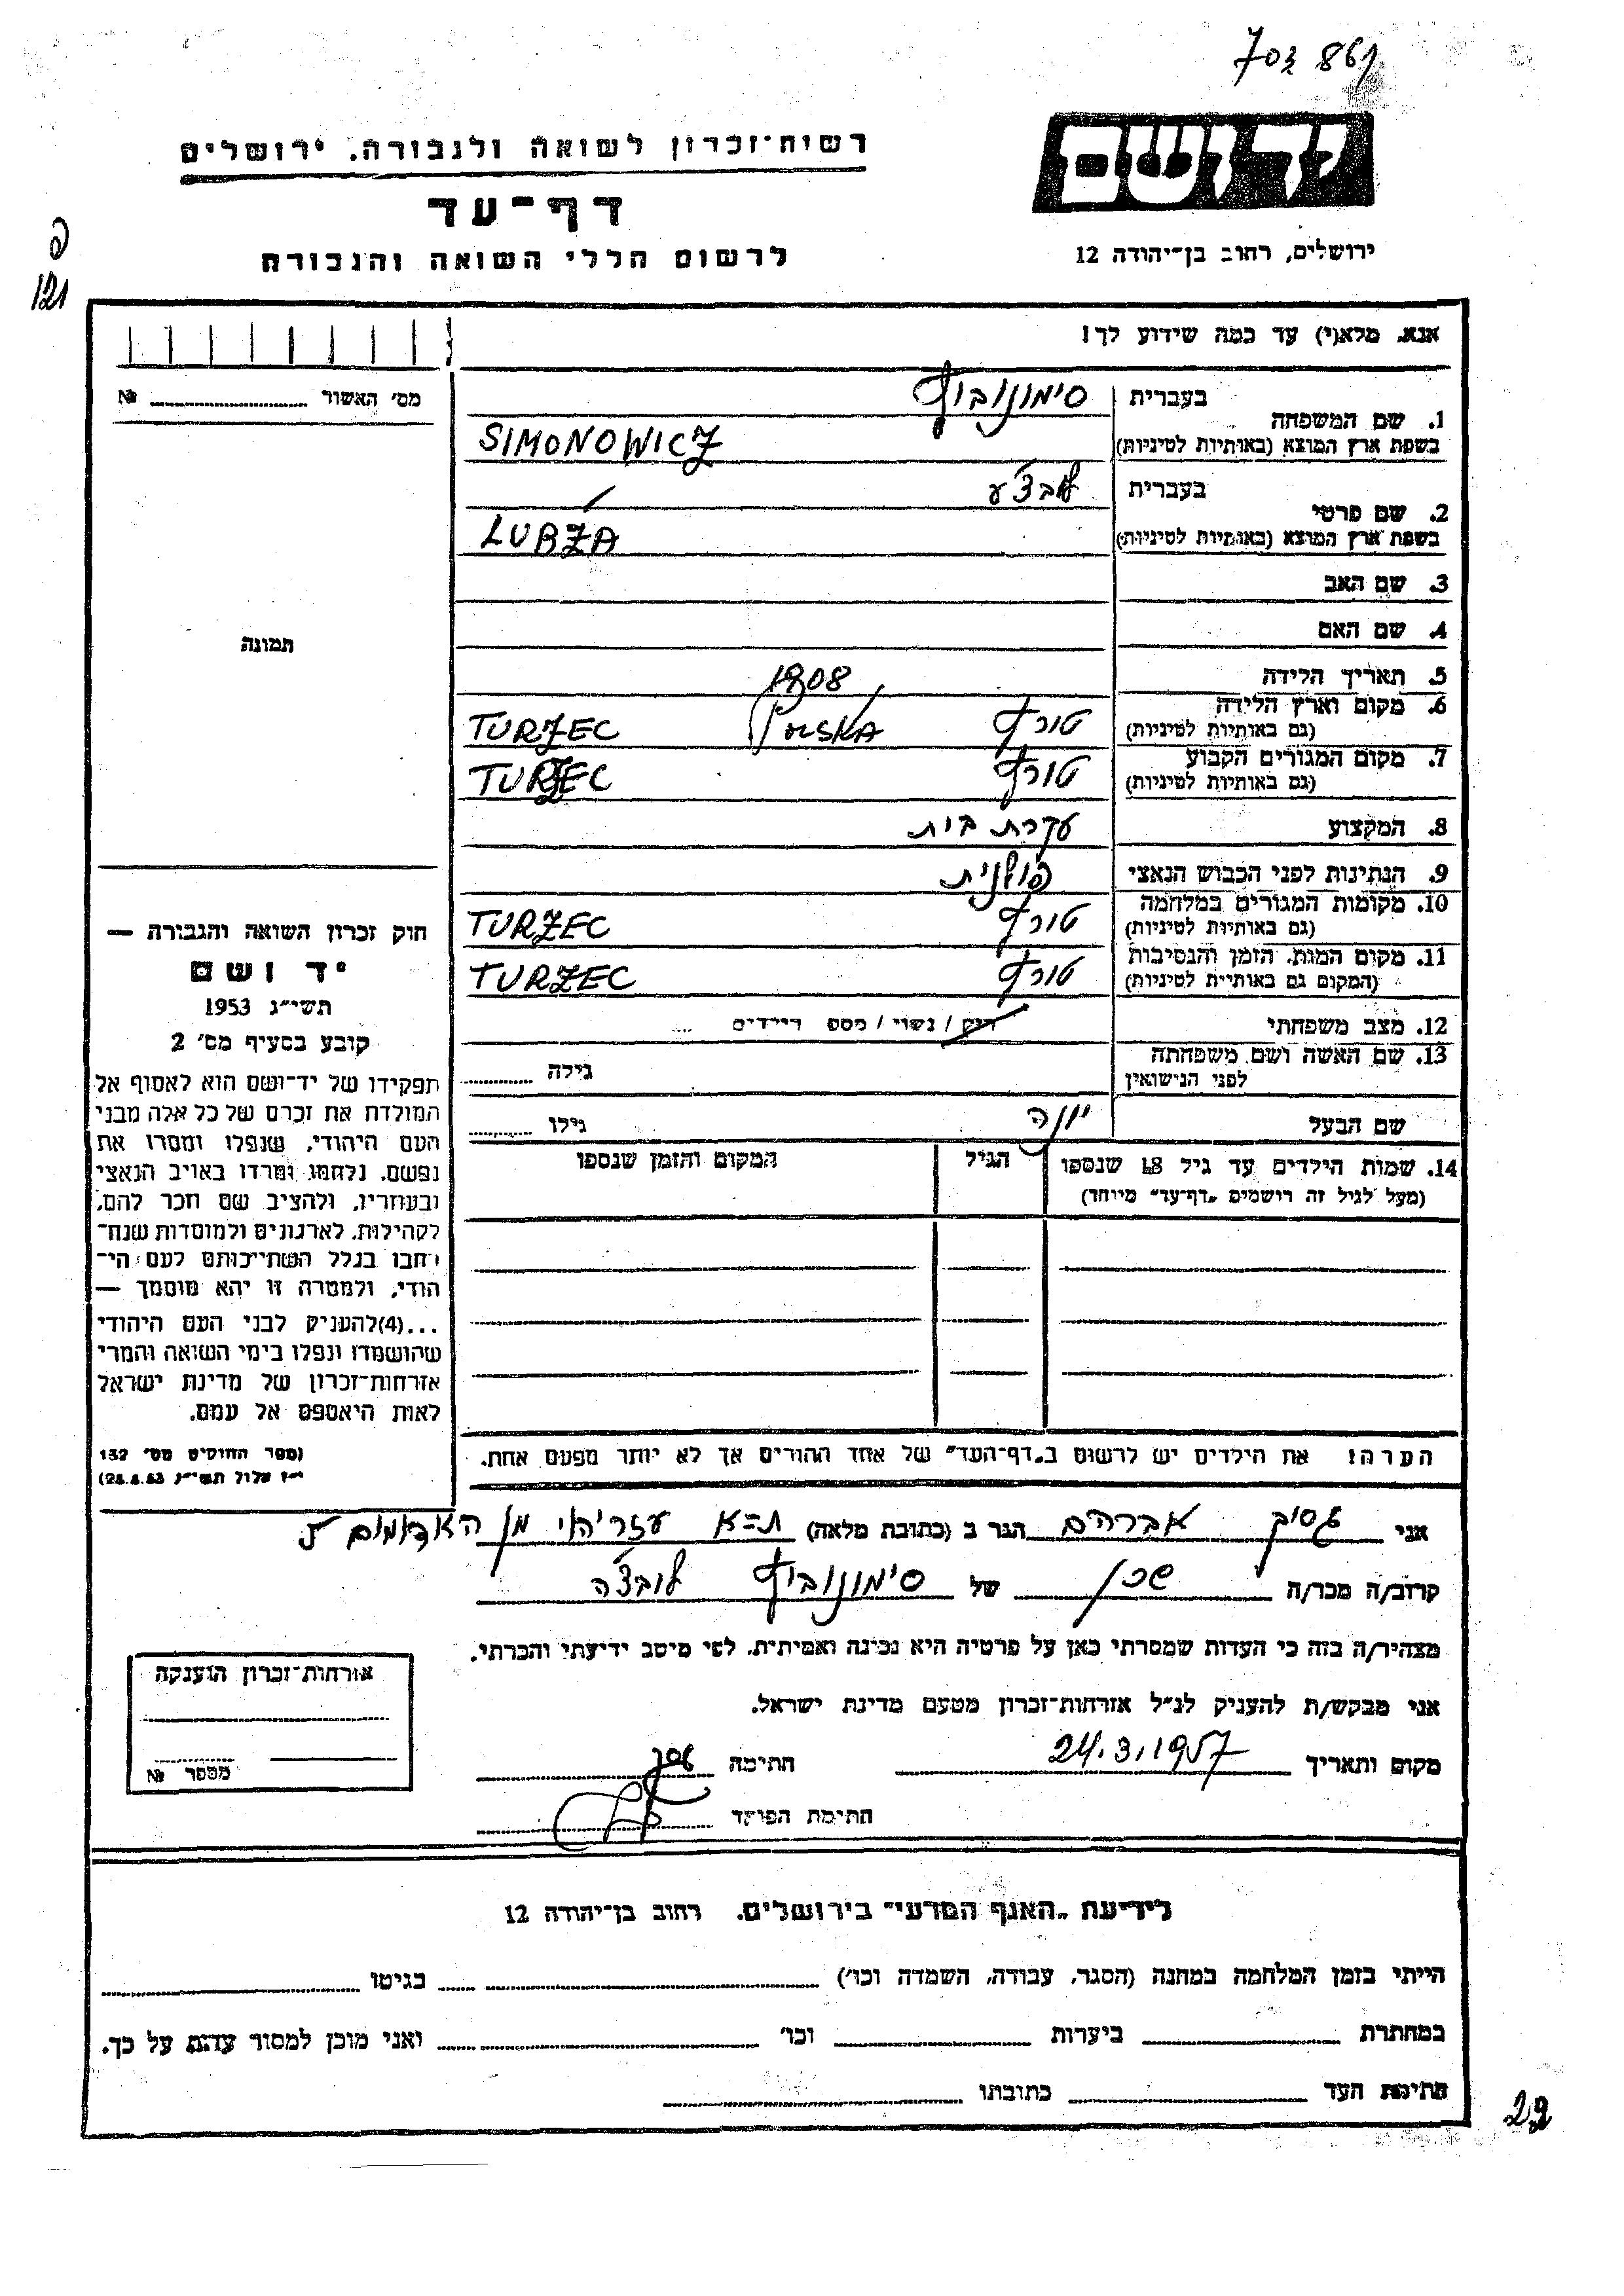 703 861
יד ושם
רשות־זכרון לשואה ולגבורה. ירושלים
דף־עד
לרשום חללי השואה והגבורה
ירושלים, רחוב בן־יהודה 12
121
אנא. מלא(י) עד כמה שידוע לך!
מס׳ האשור № 
1. שם המשפחה
בעברית סימונוביץ
בשפת ארץ המוצא (באותיות לטיניות) SIMONOWICZ
2. שם פרטי
בעברית לובצ׳ע
בשפת ארץ המוצא (באותיות לטיניות) LUBZA
3. שם האב
4. שם האם
תמונה
5. תאריך הלידה 1908
6. מקום וארץ הלידה טורץ POLSKA TURZEC
(גם באותיות לטיניות)
7. מקום המגורים הקבוע טורץ TURZEC
(גם באותיות לטיניות)
8. המקצוע עקרת בית
9. הנתינות לפני הכבוש הנאצי פולנית
10. מקומות המגורים במלחמה טורץ TURZEC
(גם באותיות לטיניות)
11. מקום המות. הזמן והנסיבות טורץ TURZEC
(המקום גם באותיית לטיניות)
12. מצב משפחתי רוק / נשוי / מספר הילדים ...
13. שם האשה ושם משפחתה
לפני הנישואין גילה
שם הבעל יונה גילו
14. שמות הילדים עד גיל 18 שנספו הגיל המקום והזמן שנספו
(מעל לגיל זה רושמים „דף־עד״ מיוחד)
הערה! את הילדים יש לרשום ב„דף־העד״ של אחד ההורים אך לא יותר מפעם אחת.
חוק זכרון השואה והגבורה —
יד ושם
תשי״ג 1953
קובע בסעיף מס׳ 2
תפקידו של יד־ושם הוא לאסוף אל
המולדת את זכרם של כל אלה מבני
העם היהודי, שנפלו ומסרו את
נפשם, נלחמו ומרדו באויב הנאצי
ובעוזריו, ולהציב שם וזכר להם,
לקהילות, לארגונים ולמוסדות שנח־
רבו בגלל השתייכותם לעם הי־
הודי, ולמטרה זו יהא מוסמך —
...(4)להעניק לבני העם היהודי
שהושמדו ונפלו בימי השואה והמרי
אזרחות־זכרון של מדינת ישראל
לאות היאספם אל עמם.
(ספר החוקים מס׳ 132
י״ז אלול תשי״ג 28.8.53)
אני אברהם הגר ב (כתובת מלאה) ת=א מן האדומים
קרוב/ה מכר/ה שכן של סימונוביץ לובצ׳ה
מצהיר/ה בזה כי העדות שמסרתי כאן על פרטיה היא נכונה ואמיתית. לפי מיטב ידיעתי והכרתי.
אני מבקש/ת להעניק לנ״ל אזרחות־זכרון מטעם מדינת ישראל.
מקום ותאריך 24.3.1957 חתימה
חתימת הפוקד
אזרחות־זכרון הוענקה
מספר №
לידיעת „האגף המדעי״ בירושלים. רחוב בן־יהודה 12
הייתי בזמן המלחמה במחנה (הסגר. עבודה. השמדה וכו׳) בגיטו
במחתרת ביערות וכו׳ ואני מוכן למסור עדות על כך.
חתימת העד כתובתו
29